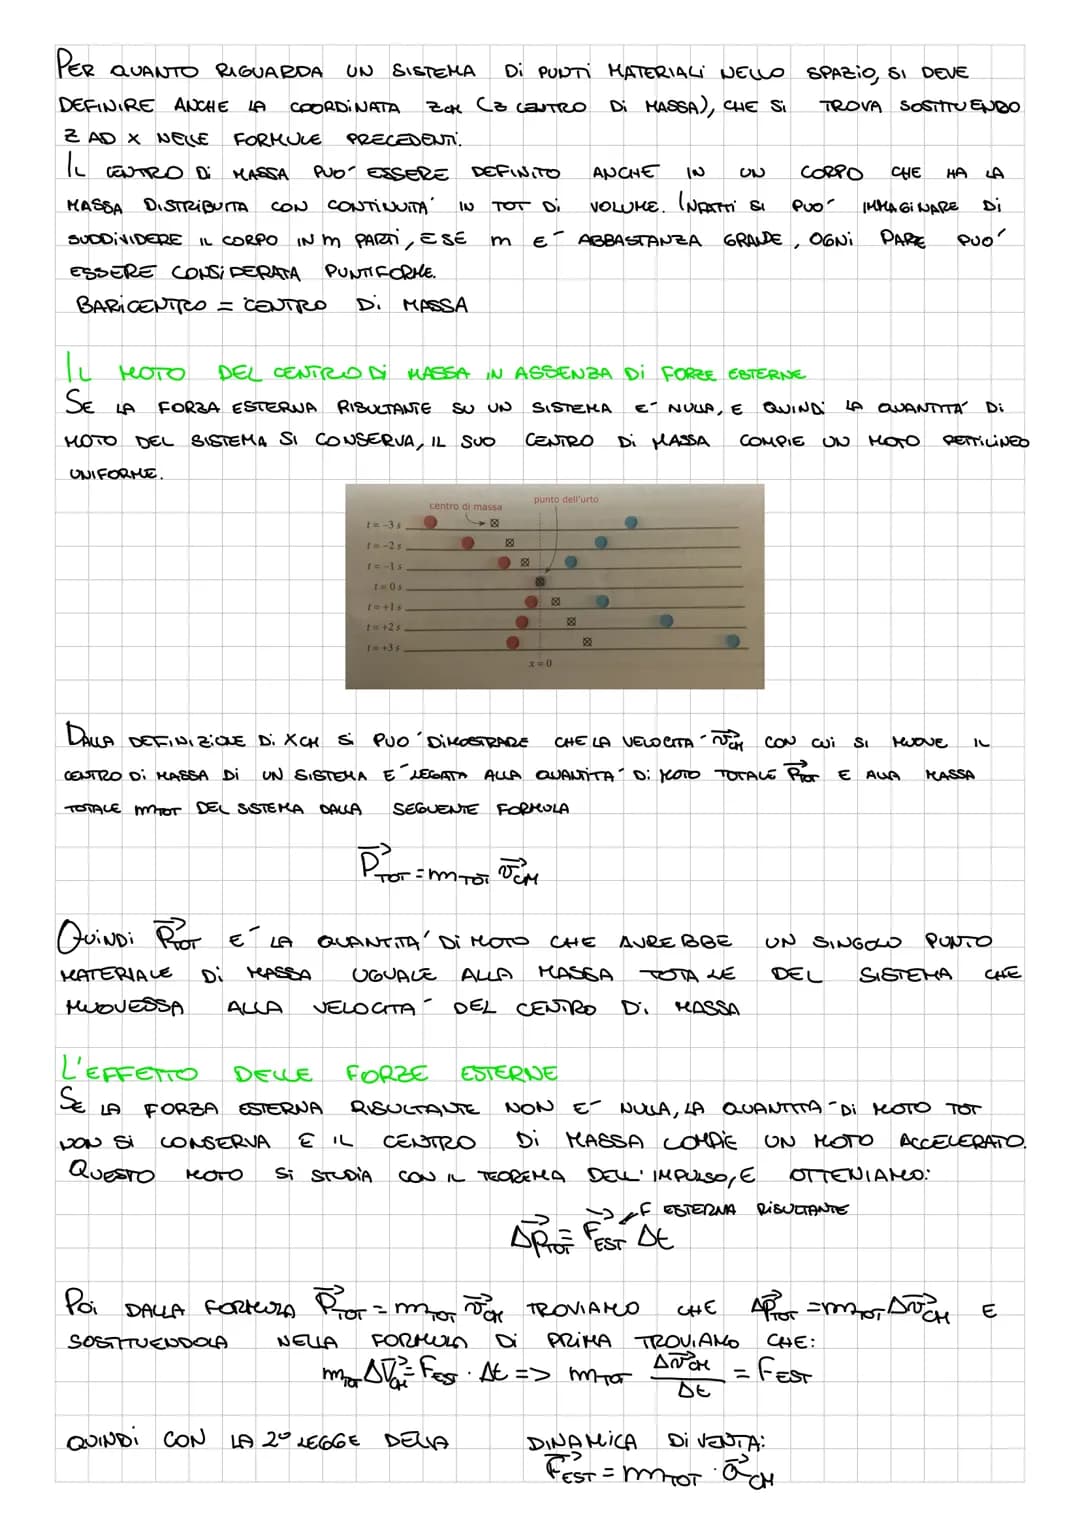 PER QUANTO RIGUARDA UN SISTEMA DI PUNTI MATERIALI NELLO SPAZIO, SI DEVE
DEFINIRE ANCHE LA COORDINATA ZCM (Z CENTRO DI MASSA), CHE SI TROVA SOSTITUENDO
Z AD X NELLE FORMULE PRECEDENTI.
IL CENTRO DI MASSA PUO' ESSERE DEFINITO ANCHE IN UN CORPO CHE HA LA
MASSA DISTRIBUITA CON CONTINUITA' IN TOT DI VOLUME. INFATTI SI PUO' IMMAGINARE DI
SUDDIVIDERE IL CORPO IN m PARTI, E SE m E' ABBASTANZA GRANDE, OGNI PARE PUO'
ESSERE CONSIDERATA PUNTIFORME.
BARICENTRO = CENTRO DI MASSA
IL MOTO DEL CENTRO DI MASSA IN ASSENZA DI FORZE ESTERNE
SE LA FORZA ESTERNA RISULTANTE SU UN SISTEMA E' NULLA, E QUINDI LA QUANTITA' DI
MOTO DEL SISTEMA SI CONSERVA, IL SUO CENTRO DI MASSA COMPIE UN MOTO RETTILINEO
UNIFORME.
centro di massa
punto dell'urto
t = -3 s
t = -2 s
t = -1 s
t = 0 s
t = +1 s
t = +2 s
t = +3 s
x = 0
DALLA DEFINIZIONE DI XCM SI PUO' DIMOSTRARE CHE LA VELOCITA' v⃗CM CON CUI SI MUOVE IL
CENTRO DI MASSA DI UN SISTEMA E' LEGATA ALLA QUANTITA' DI MOTO TOTALE P⃗TOT E ALLA MASSA
TOTALE mTOT DEL SISTEMA DALLA SEGUENTE FORMULA
P⃗TOT = mTOT v⃗CM
QUINDI P⃗TOT E' LA QUANTITA' DI MOTO CHE AVREBBE UN SINGOLO PUNTO
MATERIALE DI MASSA UGUALE ALLA MASSA TOTALE DEL SISTEMA CHE
MUOVESSA ALLA VELOCITA' DEL CENTRO DI MASSA
L'EFFETTO DELLE FORZE ESTERNE
SE LA FORZA ESTERNA RISULTANTE NON E' NULLA, LA QUANTITA' DI MOTO TOT
NON SI CONSERVA E IL CENTRO DI MASSA COMPIE UN MOTO ACCELERATO.
QUESTO MOTO SI STUDIA CON IL TEOREMA DELL'IMPULSO, E OTTENIAMO:
F ESTERNA RISULTANTE
Δp⃗TOT = F⃗EST Δt
POI DALLA FORMULA P⃗TOT = mTOT v⃗CM TROVIAMO CHE Δp⃗TOT = mTOT Δv⃗CM E
SOSTITUENDOLA NELLA FORMULA DI PRIMA TROVIAMO CHE:
mTOT ΔV⃗CM = FEST · Δt => mTOT Δv⃗CM / Δt = FEST
QUINDI CON LA 2° LEGGE DELLA DINAMICA DIVENTA:
F⃗EST = mTOT · a⃗CM